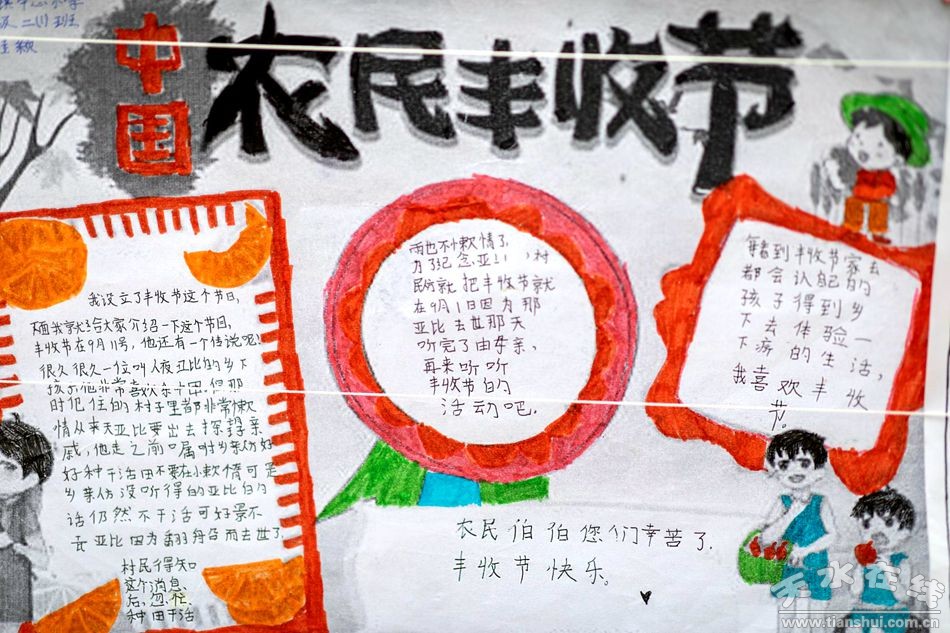 二(1)班
中国
农民丰收节
我设立了丰收节这个节日,
下面我就给大家介绍一下这个节日,
丰收节在9月1号,他还有一个传说呢!
很久很久一位叫人夜亚比的乡下
孩子他非常喜欢杀十田,但那
时他住的村子里都非常懒
情从来天亚比要出去探亲
戚,他走之前叮属咐乡亲们好
好种干活田不要在小软情可是
乡亲们没听得的亚比白的
话仍然不干活可好景不
长亚比因为翻丹谷而去世了.
村民得知
这个消息,
后,忽忙
种田干活
再也不懒情了,
为了纪念亚比,村
民就把丰收节就
在9月1日因为那
亚比去世那天
听完了由来,
再来听听
丰收节的
活动吧.
每到丰收节家长
都会认自己的
孩子得到乡
下去体验一
下的生活,
我喜欢丰收
节。
农民伯伯您们幸苦了.
丰收节快乐。
天水在线
www.tianshui.com.cn